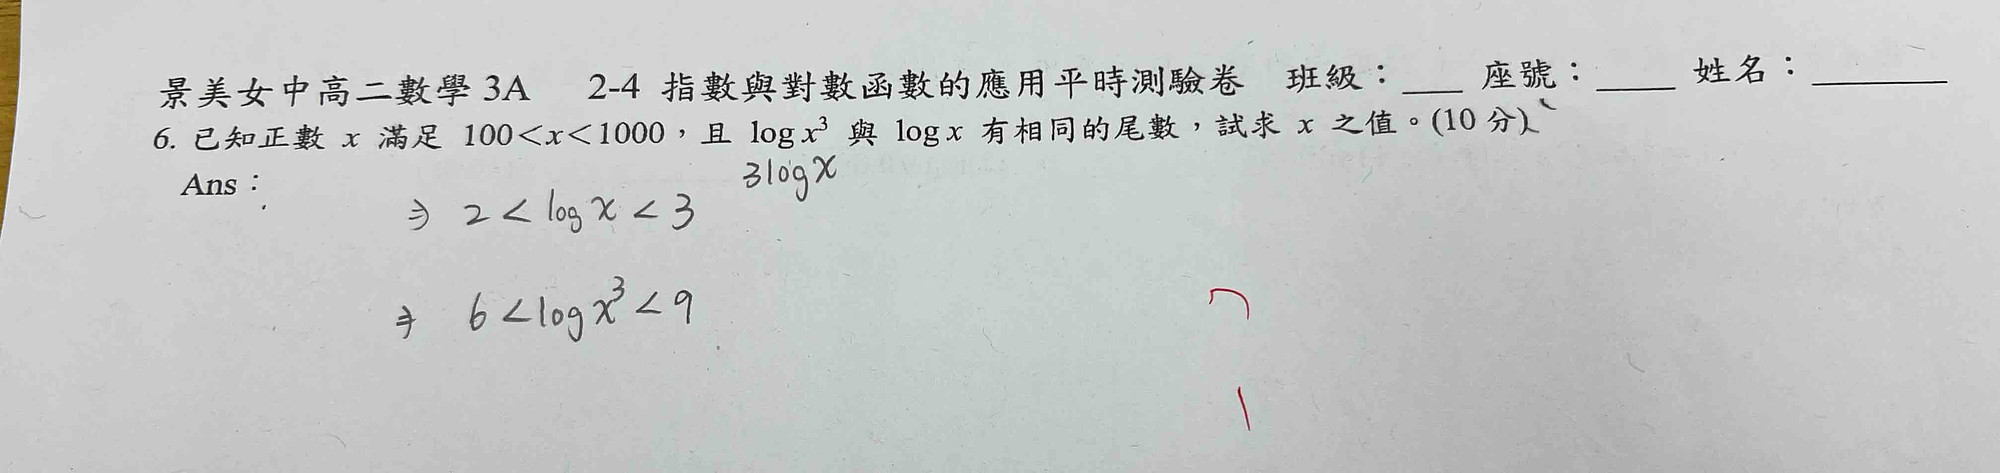 景美女中高二數學 3A 2-4 指數與對數函數的應用平時測驗卷 班級：___ 座號：____ 姓名：_______
6. 已知正數 x 滿足 100<x<1000，且 log x³ 與 log x 有相同的尾數，試求 x 之值。(10 分)
3logx
Ans：
⇒ 2 < log x < 3
⇒ 6 < log x³ < 9